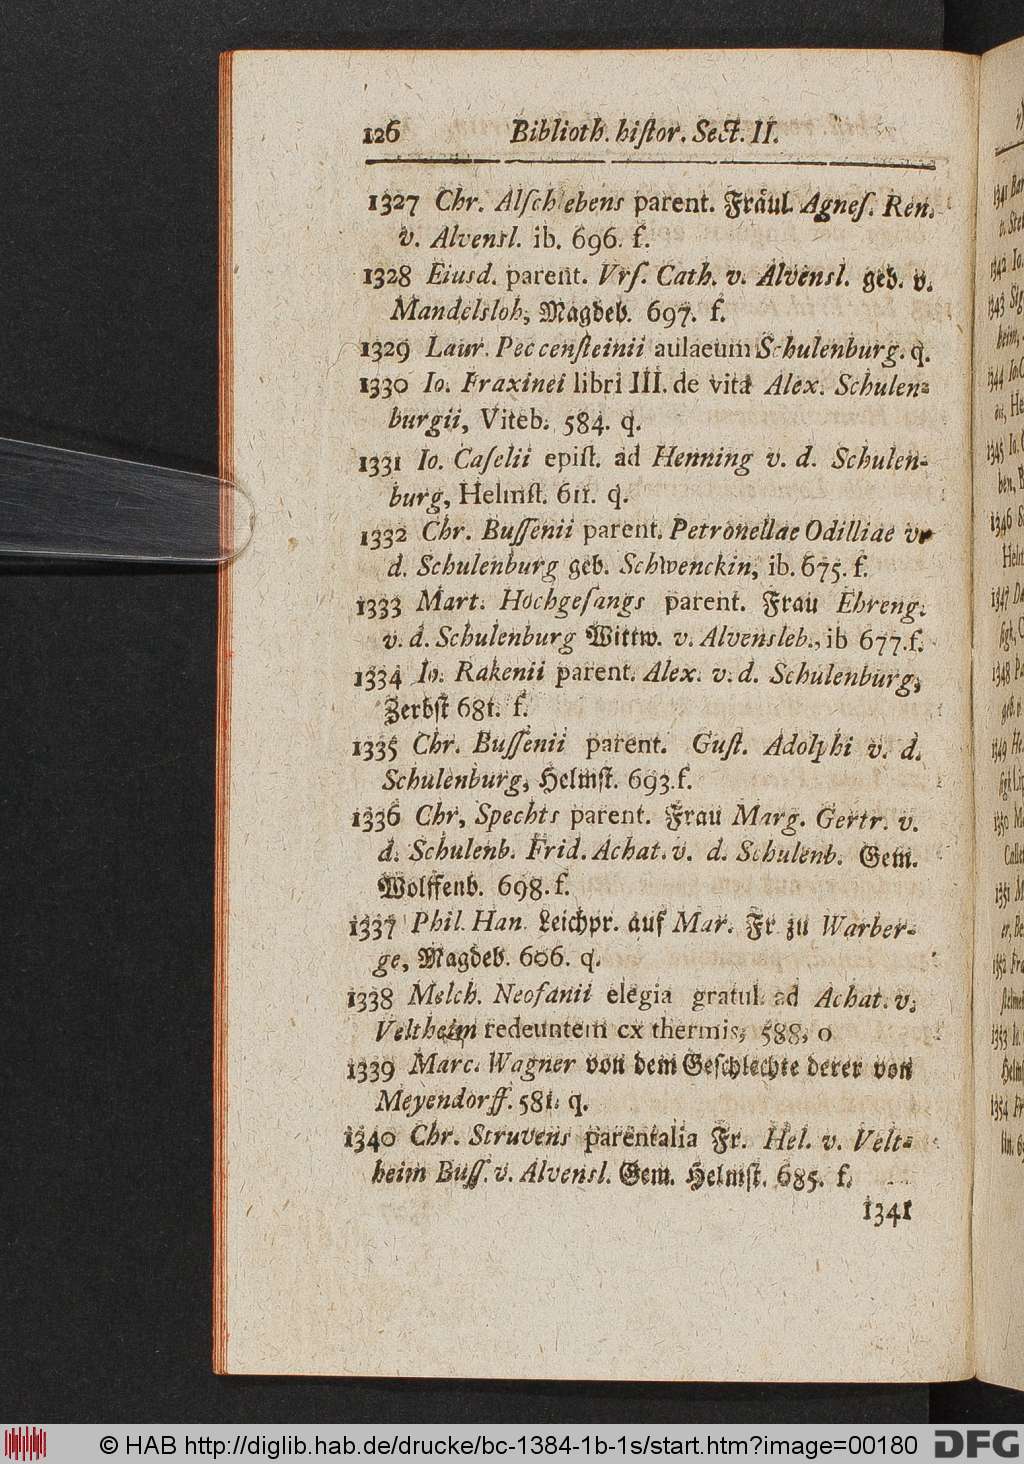 126 Biblioth. hiſtor. Sect. II.
1327 Chr. Alſchlebens parent. Fräul. Agneſ. Ren.
v. Alvensl. ib. 696. f.
1328 Eiusd. parent. Vrſ. Cath. v. Alvensl. geb. v.
Mandelsloh, Magdeb. 697. f.
1329 Laur. Peccenſteinii aulaeum Schulenburg. q.
1330 Io. Fraxinei libri III. de vita Alex. Schulen-
burgii, Viteb. 584. q.
1331 Io. Caſelii epiſt. ad Henning v. d. Schulen-
burg, Helmſt. 611. q.
1332 Chr. Buſſenii parent. Petronellae Odilliae v.
d. Schulenburg geb. Schwenckin, ib. 675. f.
1333 Mart. Hochgeſangs parent. Frau Ehreng.
v. d. Schulenburg Wittw. v. Alvensleb., ib 677. f.
1334 Io. Rakenii parent. Alex. v. d. Schulenburg,
Zerbſt 681. f.
1335 Chr. Buſſenii parent. Guſt. Adolphi v. d.
Schulenburg, Helmſt. 693. f.
1336 Chr, Spechts parent. Frau Marg. Gertr. v.
d. Schulenb. Frid. Achat. v. d. Schulenb. Gem.
Wolffenb. 698. f.
1337 Phil. Han Leichpr. auf Mar. Fr zu Warber-
ge, Magdeb. 606. q.
1338 Melch. Neofanii elegia gratul. ad Achat. v.
Veltheim redeuntem ex thermis, 588, o
1339 Marc. Wagner von dem Geſchlechte derer von
Meyendorff. 581. q.
1340 Chr. Struvens parentalia Fr. Hel. v. Velt-
heim Buſſ. v. Alvensl. Gem. Helmſt. 685. f.
1341
© HAB http://diglib.hab.de/drucke/bc-1384-1b-1s/start.htm?image=00180 DFG